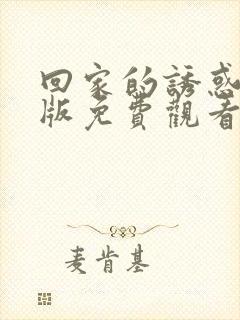 回家的誘惑
版免費觀看
麦肯基